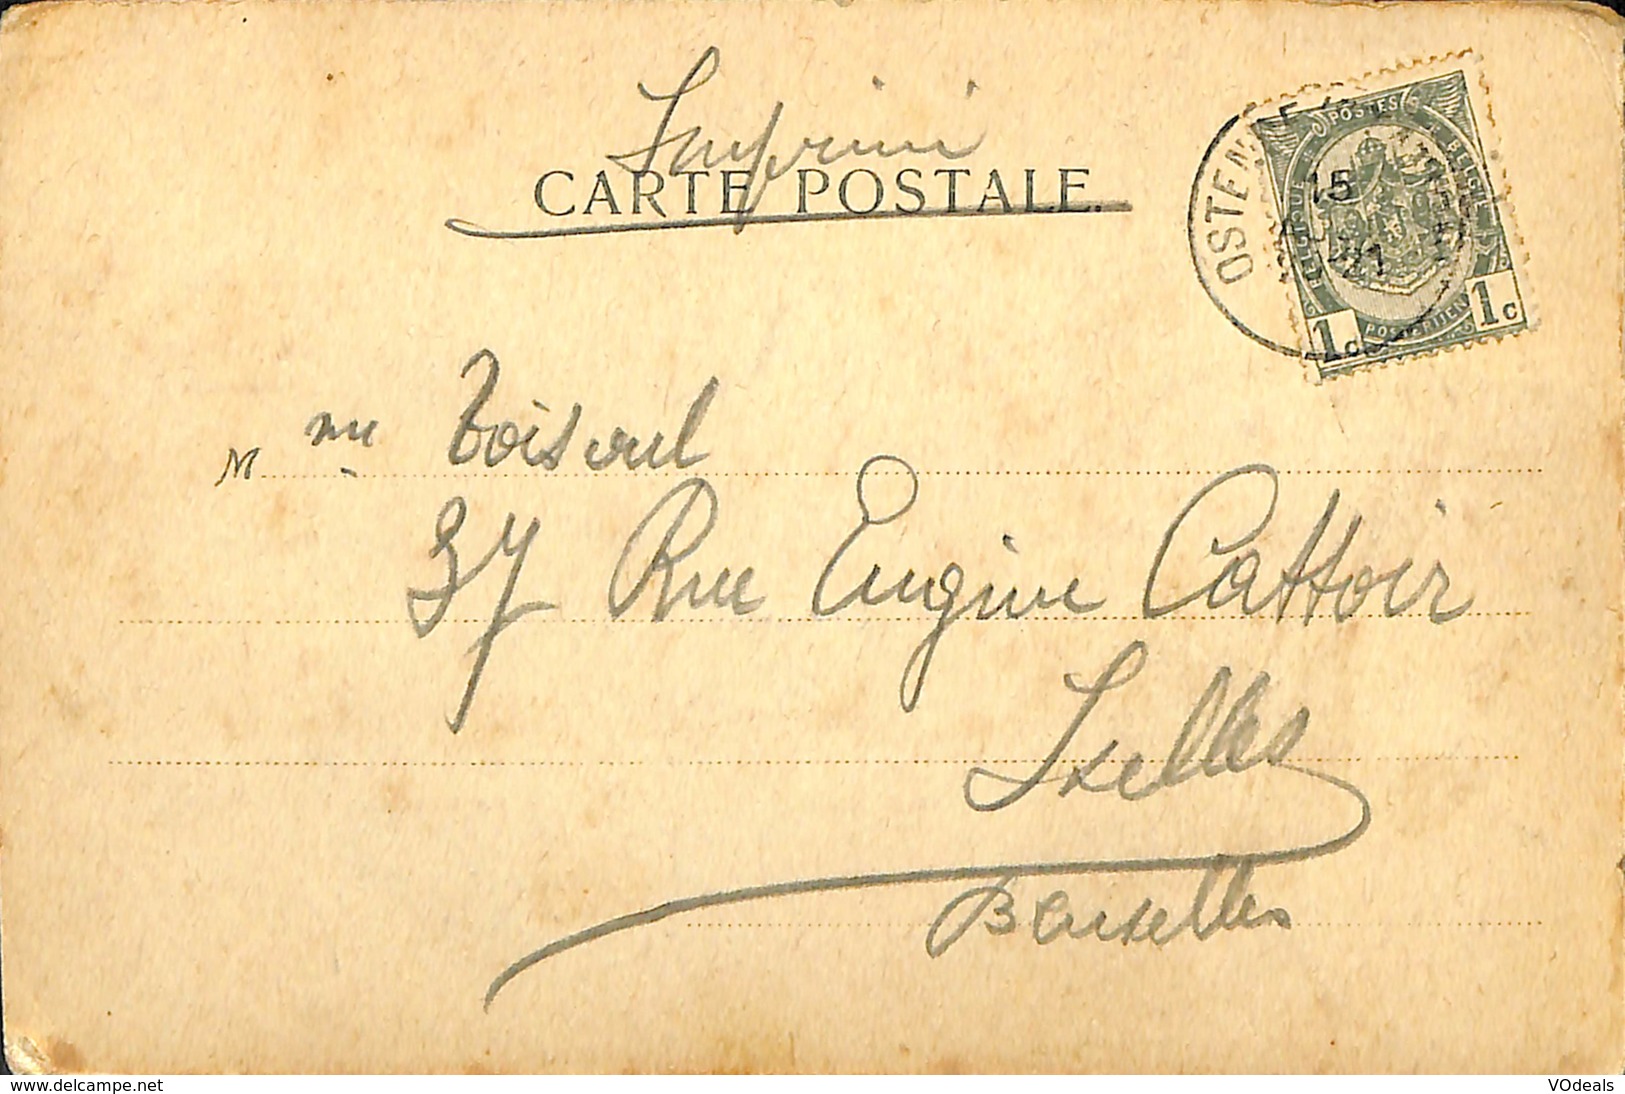 Imprimé
CARTE POSTALE.
OSTENDE
15
POSTES
BELGIQUE
BELGIË
POSTERIJEN
1c 1c
Mme
37 Rue Eugène Cattoir
Ixelles
Bruxelles
www.delcampe.net
VOdeals